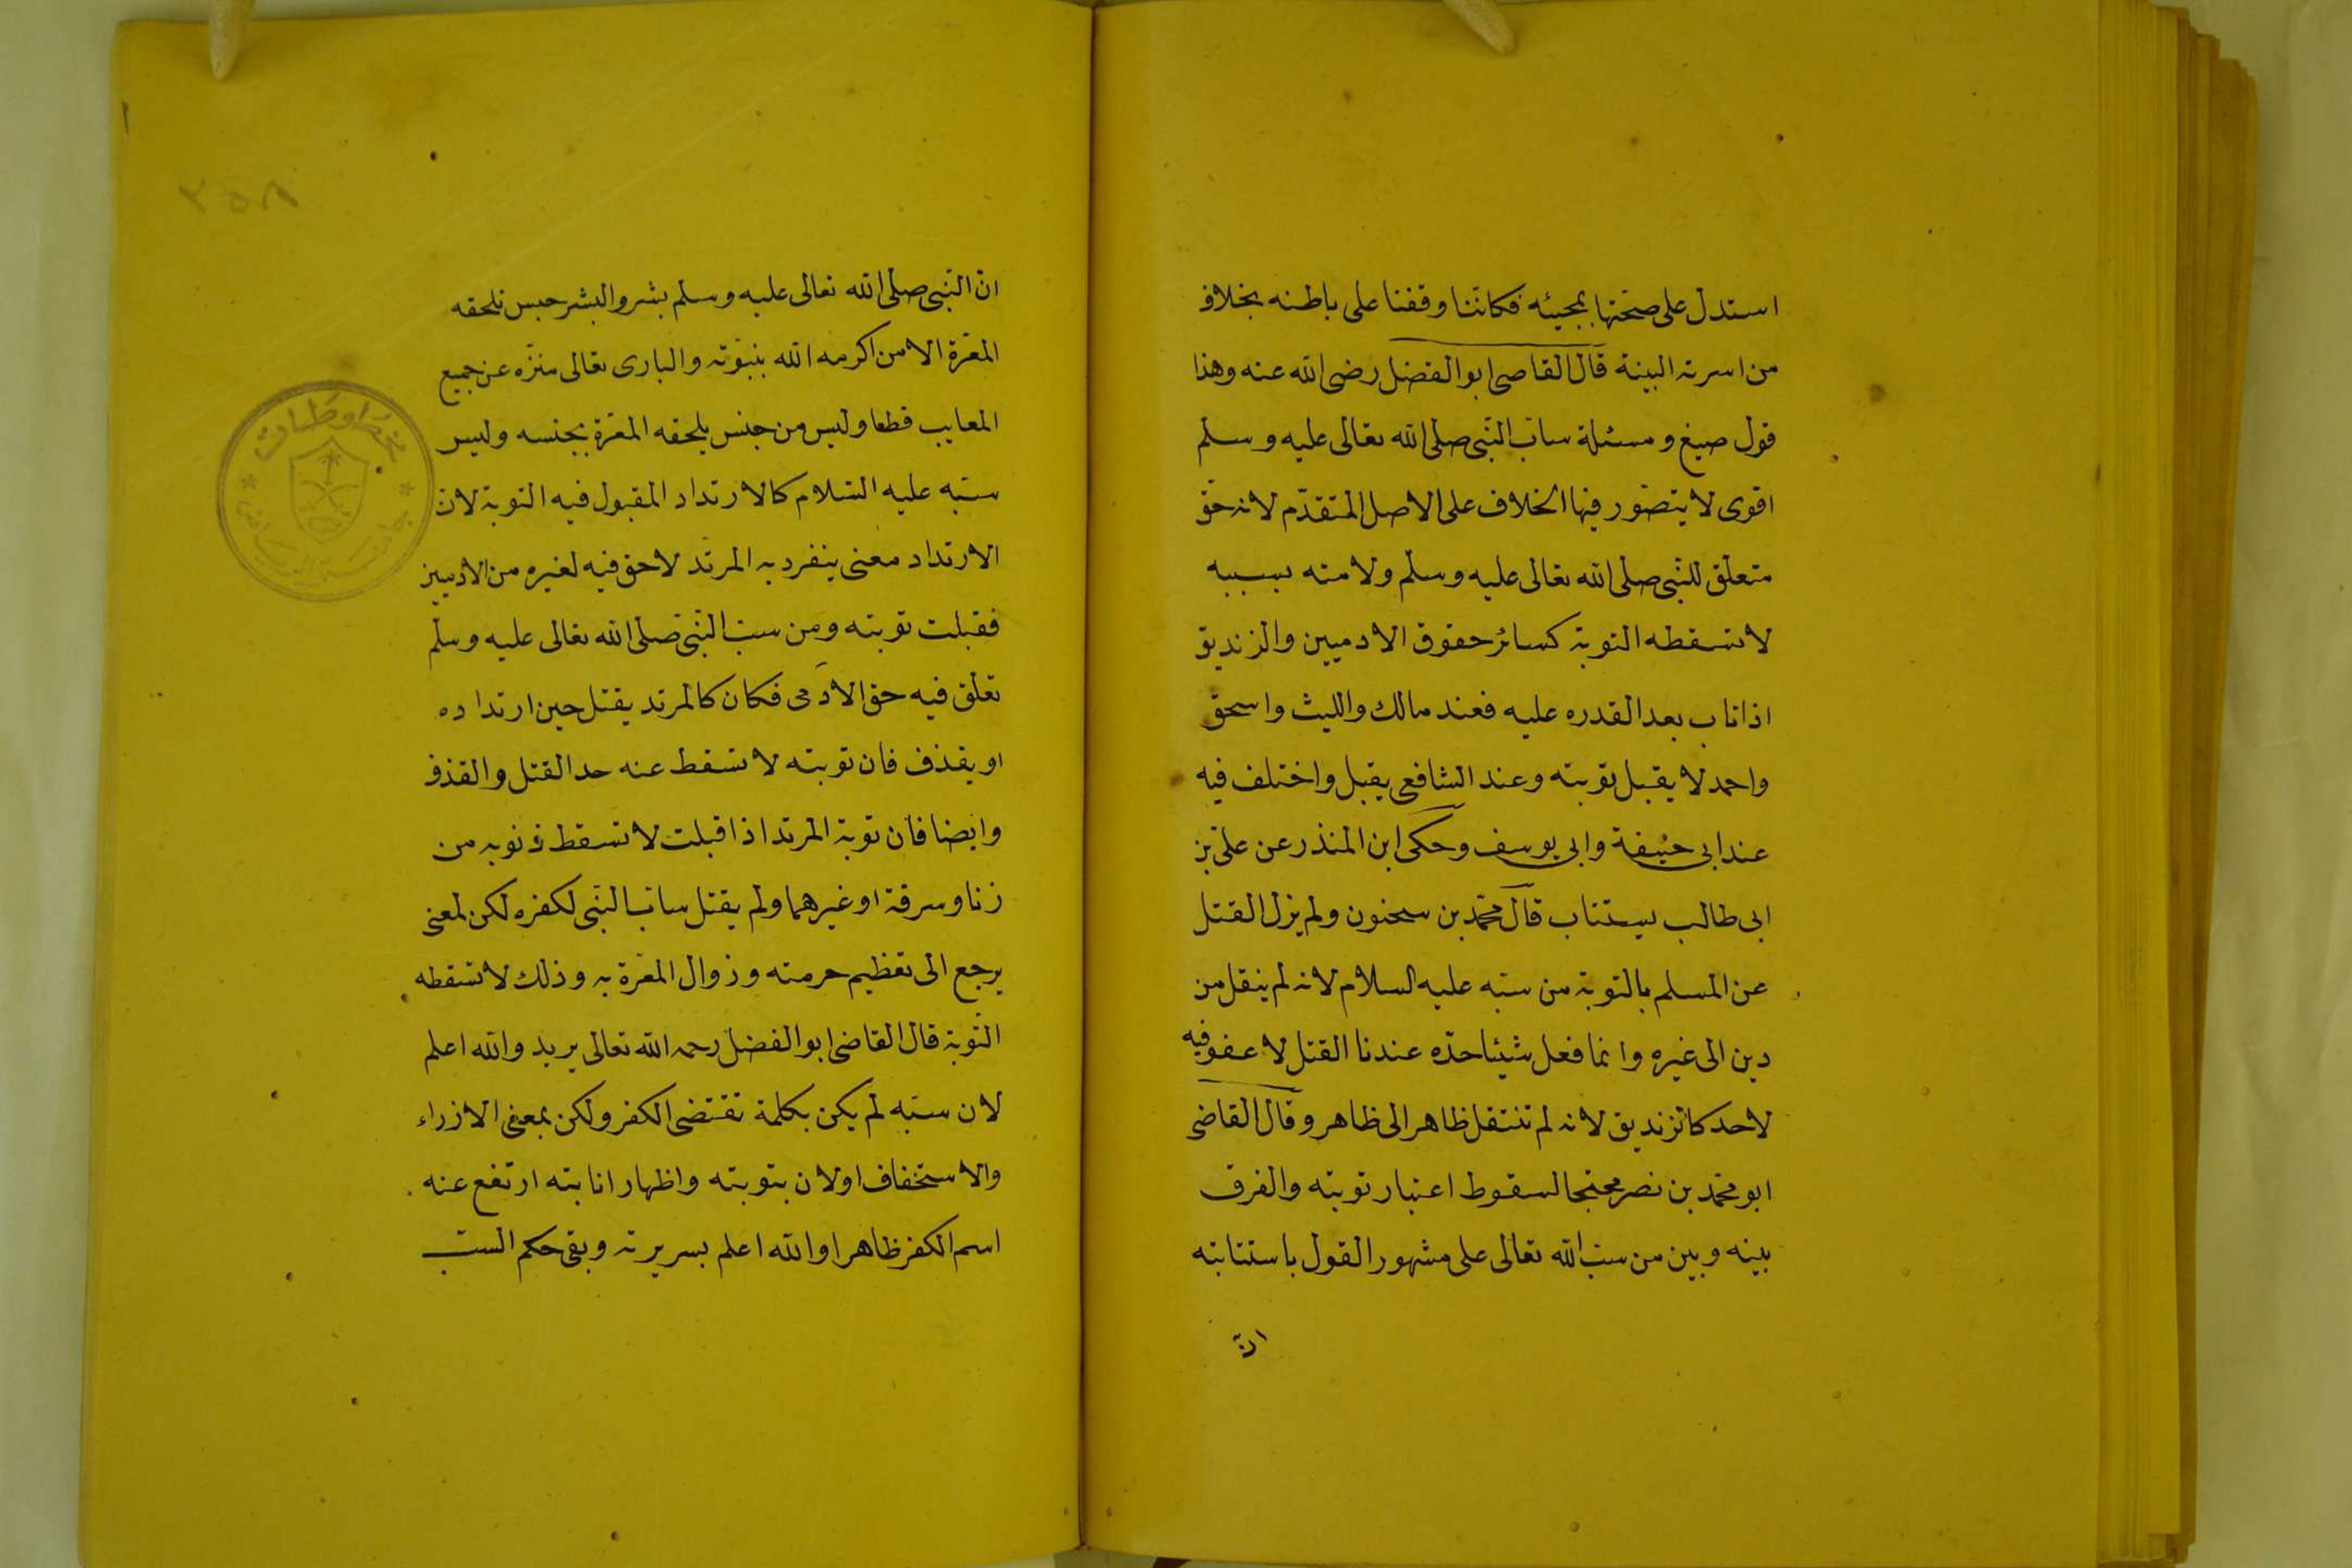 استدل على صحتها بمجيئه فكاننا وقفنا على باطنه بخلاف
من اسرته البينة قال القاضى ابو الفضل رضى الله عنه وهذا
قول صبغ و مسئلة ساب النبى صلى الله تعالى عليه وسلم
اقوى لا يتصور فيها الخلاف على الاصل المتقدم لانه حق
متعلق للنبى صلى الله تعالى عليه وسلم ولامته بسببه
لا تسقطه التوبة كسائر حقوق الادميين والزنديق
اذا تاب بعد القدره عليه فعند مالك والليث واسحق
واحمد لا يقبل توبته وعند الشافعى يقبل واختلف فيه
عند ابى حنيفة وابى يوسف وحكى ابن المنذر عن على بن
ابى طالب يستتاب قال محمد بن سحنون ولم يزل القتل
عن المسلم بالتوبة من سبه عليه السلام لانه لم ينقل من
دين الى غيره وانما فعل شيئا حده عندنا القتل لا عفو فيه
لاحد كالزنديق لانه لم تنتقل ظاهر الى ظاهر وقال القاضى
ابو محمد بن نصر محتجا لسقوط اعتبار توبته والفرق
بينه وبين من سب الله تعالى على مشهور القول باستتابته
ان
٢٥٨
ان النبى صلى الله تعالى عليه وسلم بشر والبشر جبس تلحقه
المعرة الا من اكرمه الله بنبوته والبارى تعالى منزه عن جميع
المعايب قطعا وليس من جنس يلحقه المعرة بجنسه وليس
سبه عليه السلام كالارتداد المقبول فيه التوبة لان
الارتداد معنى ينفرد به المرتد لا حق فيه لغيره من الادميين
فقبلت توبته ومن سب النبى صلى الله تعالى عليه وسلم
تعلق فيه حق الادمى فكان كالمرتد يقتل حين ارتداده
او يقذف فان توبته لا تسقط عنه حد القتل والقذف
وايضا فان توبة المرتد اذا قبلت لا تسقط ذنوبه من
زنا وسرقة او غيرهما ولم يقتل ساب النبى لكفره لكن لمعنى
يرجع الى تعظيم حرمته وزوال المعرة به وذلك لا تسقطه
التوبة قال القاضى ابو الفضل رحمه الله تعالى يريد والله اعلم
لان سبه لم يكن بكلمة تقتضى الكفر ولكن بمعنى الازراء
والاستخفاف اولان بتوبته واظهار انابته ارتفع عنه
اسم الكفر ظاهرا والله اعلم بسريرته وبقى حكم السب
مخطوطات
جامعة الرياض